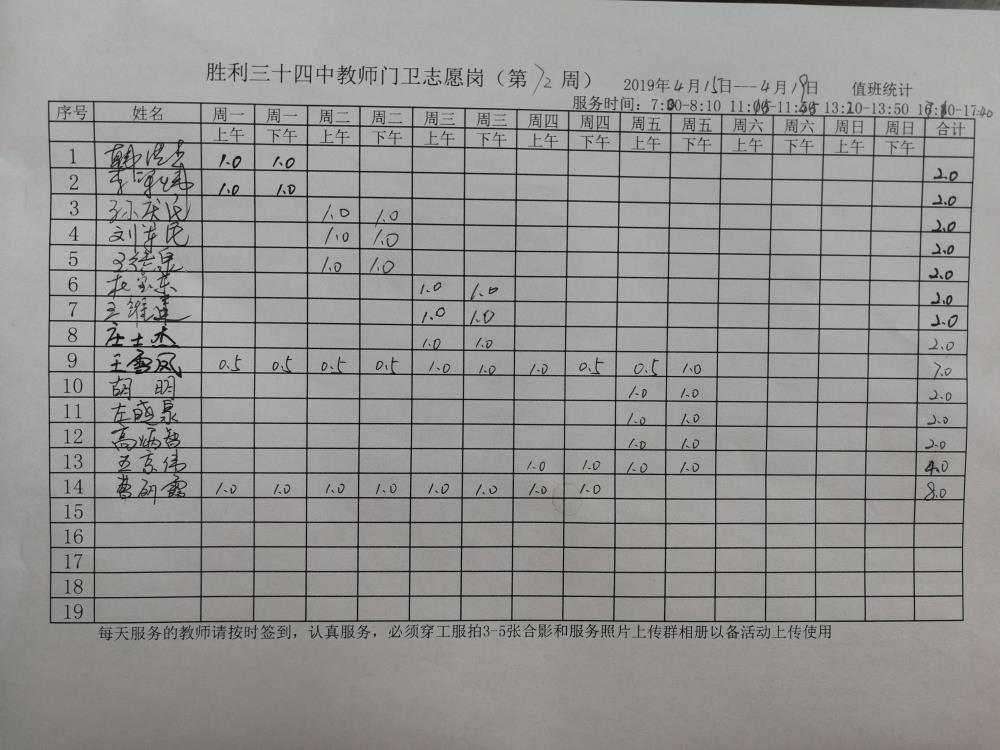 胜利三十四中教师门卫志愿岗（第12周） 2019年4月15日---4月19日 值班统计
服务时间：7:30-8:10 11: -11: 13:20-13:50 -17:40
序号 姓名 周一 周一 周二 周二 周三 周三 周四 周四 周五 周五 周六 周六 周日 周日 合计
上午 下午 上午 下午 上午 下午 上午 下午 上午 下午 上午 下午 上午 下午
1 1.0 1.0 2.0
2 1.0 1.0 2.0
3 1.0 1.0 2.0
4 刘 民 1.0 1.0 2.0
5 泉 1.0 1.0 2.0
6 1.0 1.0 2.0
7 王维 1.0 1.0 2.0
8 庄士杰 1.0 1.0 2.0
9 王雪凤 0.5 0.5 0.5 0.5 1.0 1.0 1.0 0.5 0.5 1.0 7.0
10 胡明 1.0 1.0 2.0
11 左晓泉 1.0 1.0 2.0
12 高炳智 1.0 1.0 2.0
13 京伟 1.0 1.0 1.0 1.0 4.0
14 曹砚霞 1.0 1.0 1.0 1.0 1.0 1.0 1.0 1.0 8.0
15
16
17
18
19
每天服务的教师请按时签到，认真服务，必须穿工服拍3-5张合影和服务照片上传群相册以备活动上传使用